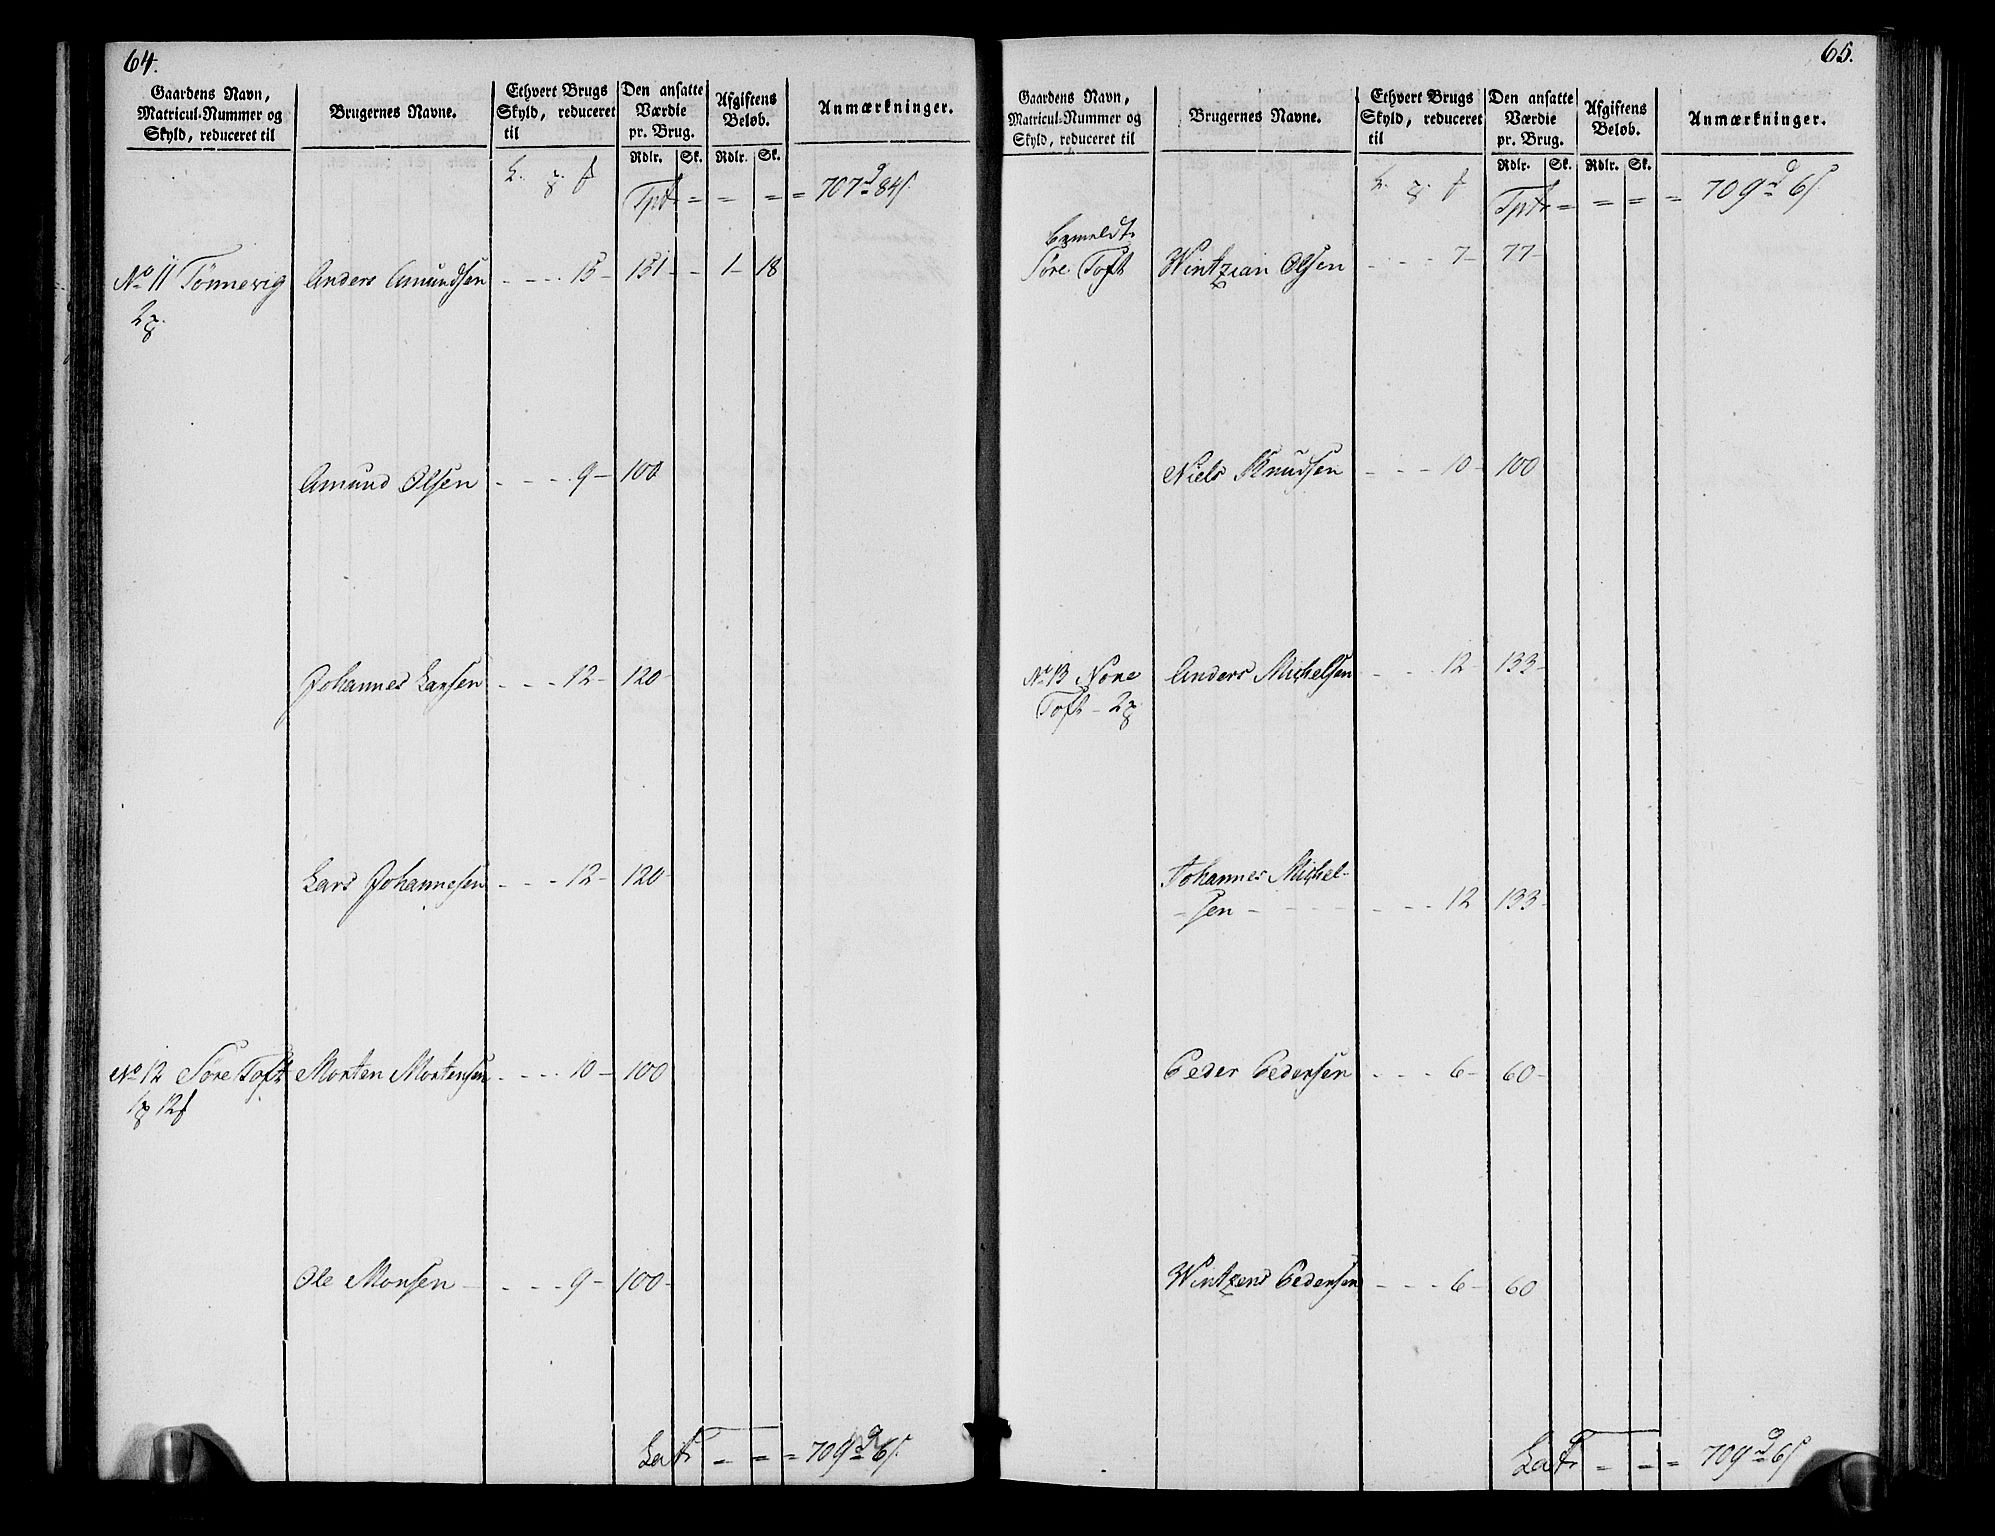 64.
Gaardens Navn, Matricul-Nummer og Skyld, reduceret til
Brugernes Navne.
Ethvert Brugs Skyld, reduceret til
Den ansatte Værdie pr. Brug.
Afgiftens Beløb.
Anmærkninger.
Rdlr. Sk. Rdlr. Sk.
Tpt. = = = = 707 84
No 11 Tönnevig Anders Amundsen - - - 15 - 131 - - 1 - 18
2
Amund Olsen - - - 9 - 100
Johannes Larsen - - - 12 - 120 -
Lars Johannesen - - - 12 - 120 -
No 12 Söre Toft Morten Mortensen - - - 10 - 100
1 12
Ole Monsen - - - - 9 - 100 -
Lat. = = = 709 6
65.
Gaardens Navn, Matricul-Nummer og Skyld, reduceret til
Brugernes Navne.
Ethvert Brugs Skyld, reduceret til
Den ansatte Værdie pr. Brug.
Afgiftens Beløb.
Anmærkninger.
Rdlr. Sk. Rdlr. Sk.
Tpt. = = = = = 709 6
bemeldt
Söre Toft Wintzian Olsen - - - 7 - 77 -
Niels Knudsen - - - 10 - 100
No 13 Nore Anders Michelsen - - - 12 - 133 -
Toft - 2
Johannes Michel-
- sen - - - - - - 12 133 -
Peder Pedersen - - - 6 - 60 -
Wintzens Pedersen - - - 6 - 60
Lat. = = = 709 6